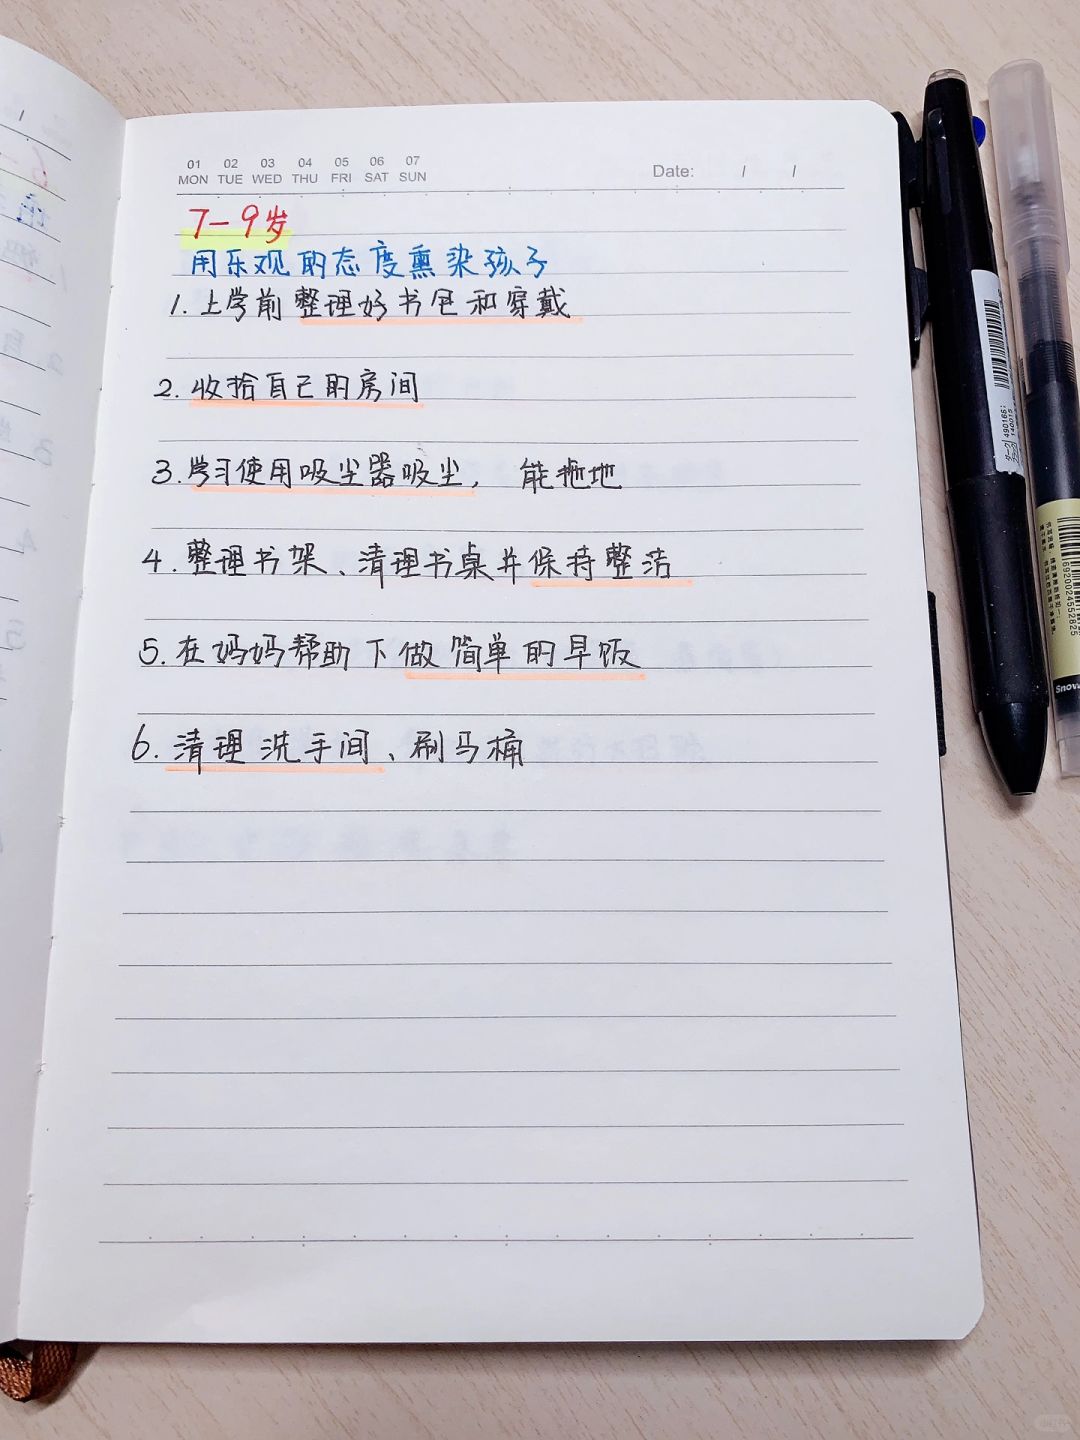 01 02 03 04 05 06 07
MON TUE WED THU FRI SAT SUN
Date: / /
7-9岁
用乐观的态度熏染孩子
1.上学前整理好书包和穿戴
2.收拾自己的房间
3.学习使用吸尘器吸尘，能拖地
4.整理书架、清理书桌并保持整洁
5.在妈妈帮助下做简单的早饭
6.清理洗手间、刷马桶
490166
140015
6920024552825
Snow